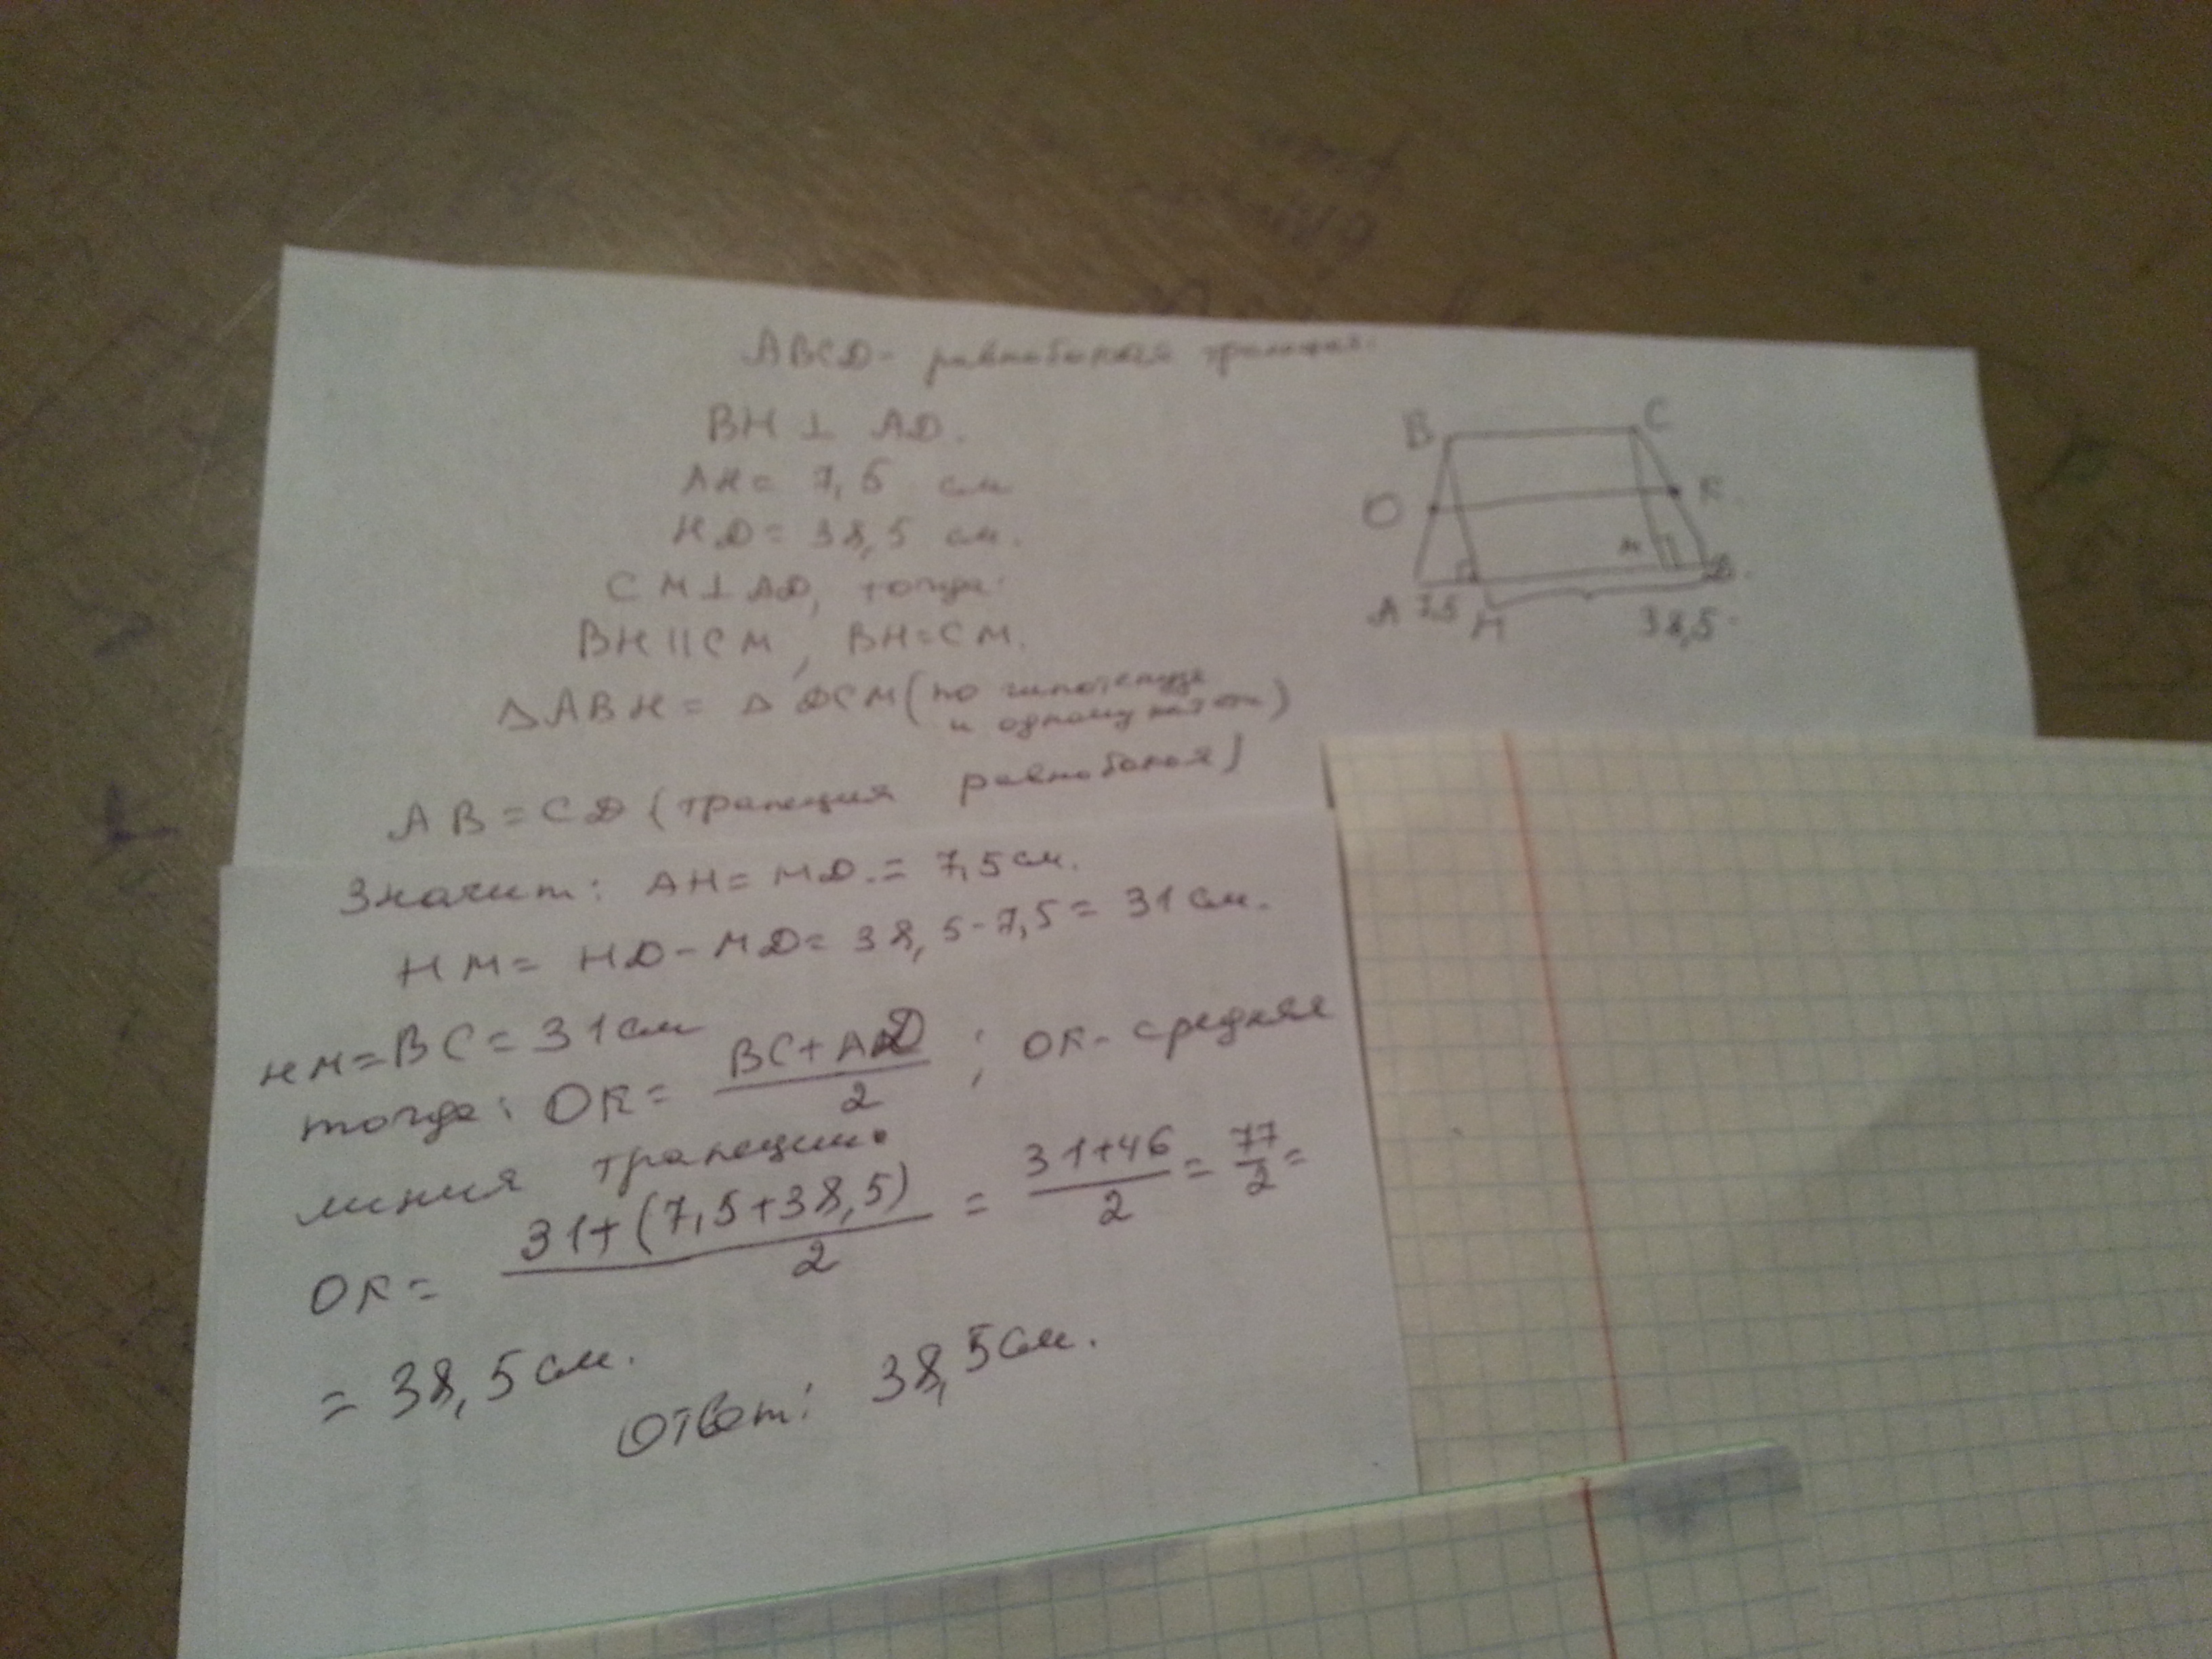 ABCD - равнобокая трапеция.
BH ⊥ AD.
AH = 7,5 см.
HD = 38,5 см.
CM ⊥ AD, тогда:
BH || CM, BH = CM.
△ABH = △DCM (по гипотенузе
и одному катету)
AB = CD (трапеция равнобокая)
Значит: AH = MD. = 7,5 см.
HM = HD - MD = 38,5 - 7,5 = 31 см.
HM = BC = 31 см
тогда: OK = BC + AD / 2 ; OK - средняя
линия трапеции.
OK = 31 + (7,5 + 38,5) / 2 = 31 + 46 / 2 = 77 / 2 =
= 38,5 см.
Ответ: 38,5 см.
B C
O K
M
A 7,5 H D.
38,5